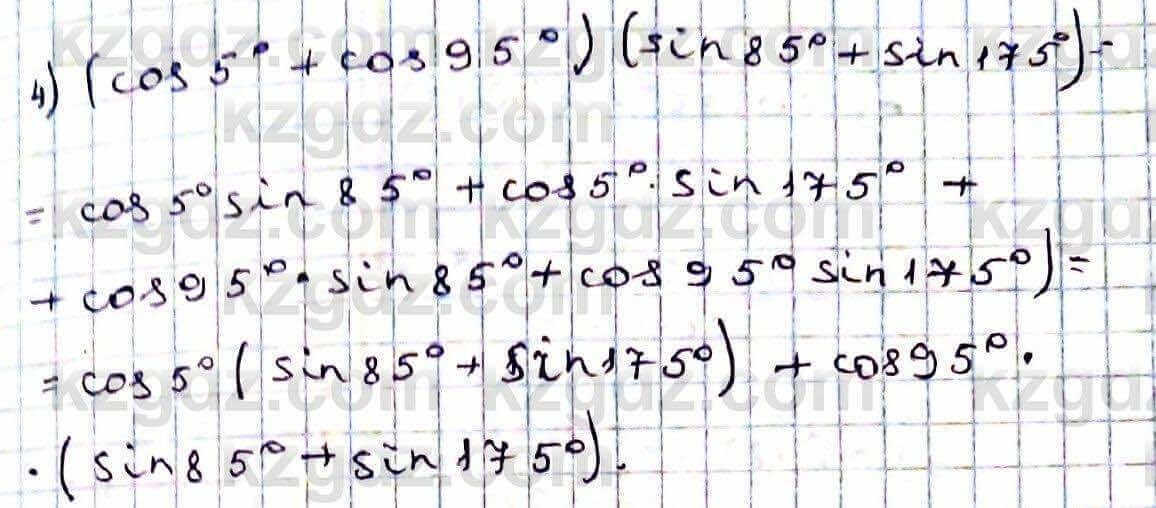 4) (cos 5° + cos 95°) (sin 85° + sin 175°) -
= cos 5° sin 85° + cos 5° · sin 175° +
+ cos 95° · sin 85° + cos 95° sin 175°) =
= cos 5° (sin 85° + sin 175°) + cos 95° ·
· (sin 85° + sin 175°).
kzgdz.com